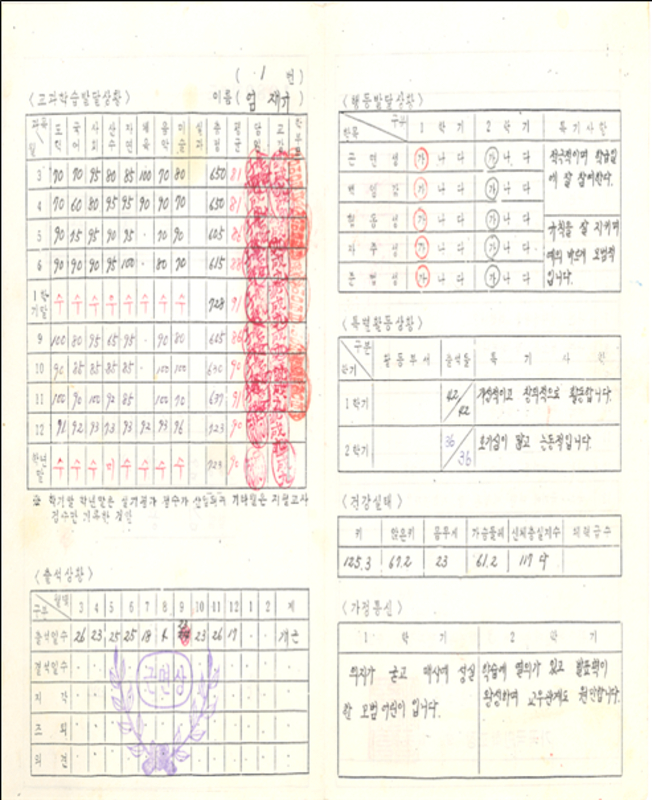 ( 1 번)
<교과학습발달상황> 이름(엄 재규)
과목 월 도덕 국어 사회 산수 자연 체육 음악 미술 실과 총점 평균
3 90 70 95 80 85 100 70 80 650 81
4 70 60 80 95 95 90 90 70 650 81
5 90 75 95 90 95 · 70 90 605 86
6 90 90 90 95 100 · 80 70 615 88
1학기말 수 수 수 우 수 수 수 수 728 91
9 100 80 95 65 95 · 90 80 605 86
10 90 85 85 85 85 · 100 100 630 90
11 100 90 100 92 85 · 100 70 637 91
12 91 92 93 73 93 92 93 96 723 90
학년말 수 수 수 미 수 수 수 수 723 90
※ 학기말 학년말은 실기평가 점수가 산입되며 기타달은 지필고사
점수만 기록한 것임
<출석상황>
구분 월별 3 4 5 6 7 8 9 10 11 12 1 2 계
출석일수 26 23 25 25 18 4 23 26 17 · · 개근
결석일수
지각
조퇴
결과
근면상
<행동발달상황>
구분 항목 1 학 기 2 학 기 특기사항
근면성 가 나 다 가 나 다
책임감 가 나 다 가 나 다
협동성 가 나 다 가 나 다
자주성 가 나 다 가 나 다
준법성 가 나 다 가 나 다
적극적이며 학급일
에 잘 참여한다.
규칙을 잘 지키며
예의 바르게 모범적
입니다.
<특별활동상황>
구분 학기 활동부서 출석율 특 기 사 항
1학기 42/42 개성적이고 창의적으로 활동합니다.
2학기 36/36 호기심이 많고 능동적입니다.
<건강실태>
키 앉은키 몸무게 가슴둘레 신체충실지수
125.3 67.2 23 61.2 117 다
<가정통신>
1 학 기 2 학 기
의지가 굳고 매사에 성실
한 모범 어린이 입니다.
학습에 열의가 있고 발표력이
왕성하며 교우관계도 원만합니다.